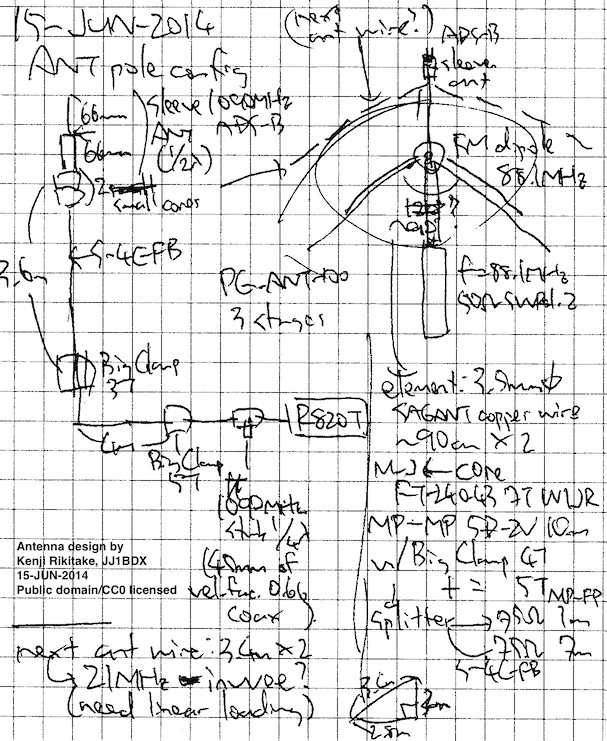 15-JUN-2014
ANT pole config
66mm
66mm
sleeve 1090MHz
ANT ADS-B
(1/2λ)
2
small cores
5-4CFB
3.6m
Big Clamp
3T
4m
Big Clamp
5T
R820T
1090MHz
stub 1/4λ
(45mm of
vel.fac. 0.66
coax)
(next
ant wire?)
ADS-B
sleeve
ant
FM dipole ~
88.1MHz
PG-ANT-100
3 stages
f=88.1MHz
50Ω SWR1.2
element: 3.5mmφ
SAGANT copper wire
~90cm × 2
M-J ← CORE
FT240-43 7T W1JR
MP-MP 5D-2V 10m
w/Big Clamp 4T
+ = 5T MP-FP
splitter → 75Ω 1m
75Ω 7m
5-4CFB
Antenna design by
Kenji Rikitake, JJ1BDX
15-JUN-2014
Public domain/CC0 licensed
next ant wire: 3.4m × 2
21MHz inv vee?
(need linear loading)
2m
2.8m